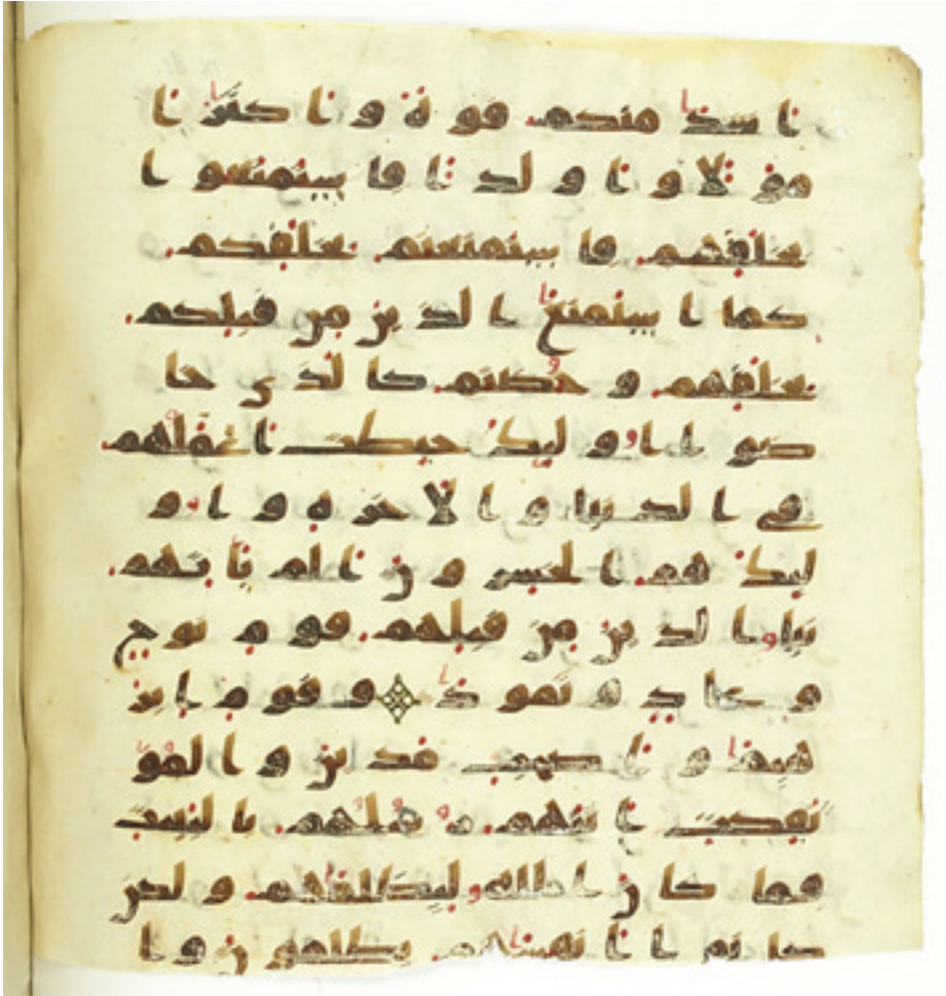 ا اشد منكم قوة و اكثر ا
مولا و اولدا فاستمتعوا
بخلقهم فاستمتعتم بخلقكم
كما استمتع الذين من قبلكم
بخلقهم و خضتم كالذي خا
ضوا اولئك حبطت اعملهم
في الدنيا و الاخرة و او
لئك هم الخسرون الم ياتهم
نبا الذين من قبلهم قوم نوح
و عاد و ثمود و قوم ابر
هيم و اصحب مدين و المو
تفكت اتتهم رسلهم بالبينت
فما كان الله ليظلمهم و لكن
كانوا انفسهم يظلمون و ا